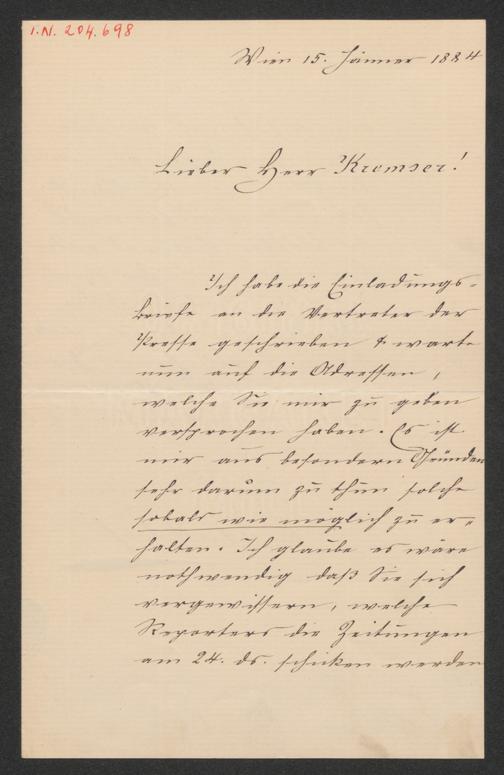 I.N. 204.698
Wien 15. Jänner 1884
Lieber Herr Kremser!
Ich habe die Einladungs-
briefe an die Vertreter der
Presse geschrieben & warte
nun auf die Adressen,
welche Sie mir zu geben
versprochen haben. Es ist
mir aus besondern Gründen
sehr darum zu thun solche
sobald wie möglich zu er-
halten. Ich glaube es wäre
nothwendig daß Sie sich
vergewissern, welche
Reporters die Zeitungen
am 24. ds. schicken werden